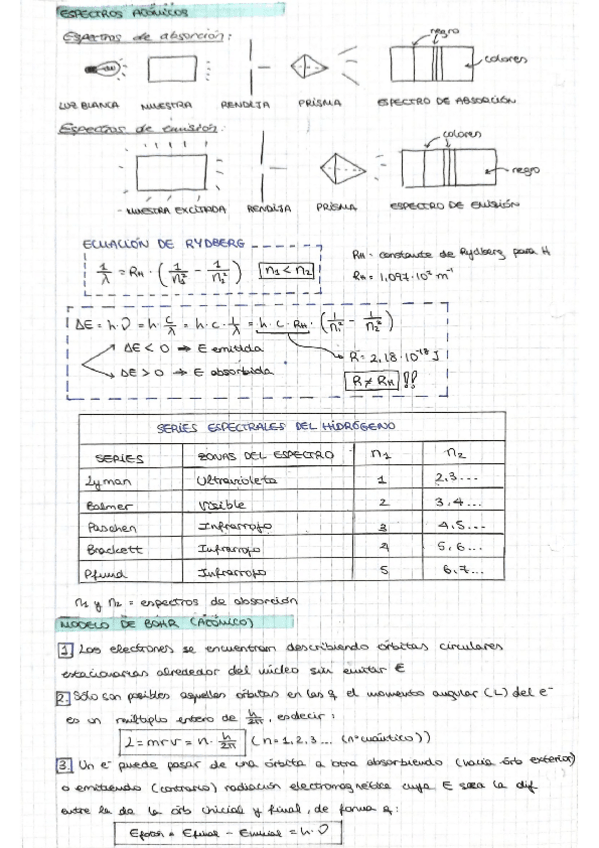 ESPECTROS ATÓMICOS
Espectros de absorción:
negro
colores
LUZ BLANCA MUESTRA RENDIJA PRISMA ESPECTRO DE ABSORCIÓN
Espectros de emisión:
colores
negro
- MUESTRA EXCITADA RENDIJA PRISMA ESPECTRO DE EMISIÓN
ECUACIÓN DE RYDBERG
1/λ = RH · (1/n₁² - 1/n₂²) n₁ < n₂
RH = constante de Rydberg para H
RH = 1,097·10⁷ m⁻¹
ΔE = h·ν = h·c/λ = h·c·1/λ = h·c·RH·(1/n₁² - 1/n₂²)
ΔE < 0 ⇒ E emitida
ΔE > 0 ⇒ E absorbida
R = 2,18·10⁻¹⁸ J
R ≠ RH !!
SERIES ESPECTRALES DEL HIDRÓGENO
SERIES ZONAS DEL ESPECTRO n₁ n₂
Lyman Ultravioleta 1 2,3...
Balmer Visible 2 3,4...
Paschen Infrarrojo 3 4,5...
Brackett Infrarrojo 4 5,6...
Pfund Infrarrojo 5 6,7...
n₁ y n₂ = espectros de absorción
MODELO DE BOHR (ATÓMICO)
1. Los electrones se encuentran describiendo órbitas circulares
estacionarias alrededor del núcleo sin emitir E
2. Sólo son posibles aquellas órbitas en las q el momento angular (L) del e⁻
es un múltiplo entero de h/2π, es decir:
L = mrv = n · h/2π (n = 1,2,3... (nº cuántico))
3. Un e⁻ puede pasar de una órbita a otra absorbiendo (hacia órb exterior)
o emitiendo (contrario) radiación electromagnética cuya E sea la dif
entre la de la órb inicial y final, de forma q:
Efotón = Efinal - Einicial = h·ν